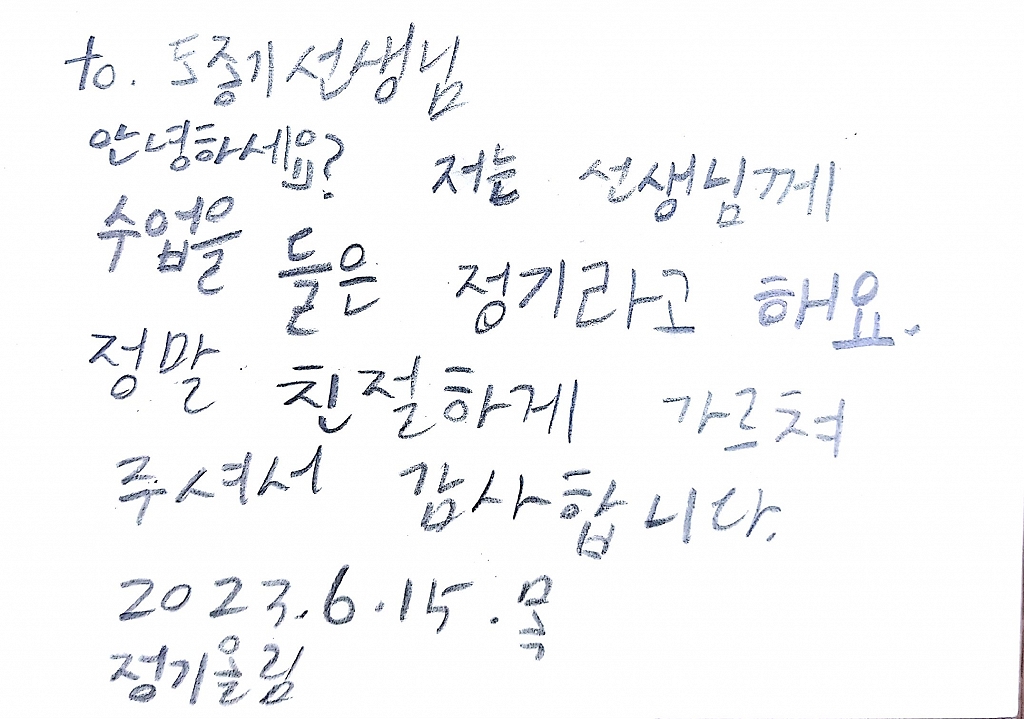 to. 도종기선생님
안녕하세요? 저는 선생님께
수업을 들은 정기라고 해요.
정말 친절하게 가르쳐
주셔서 감사합니다.
2023.6.15.목
정기올림